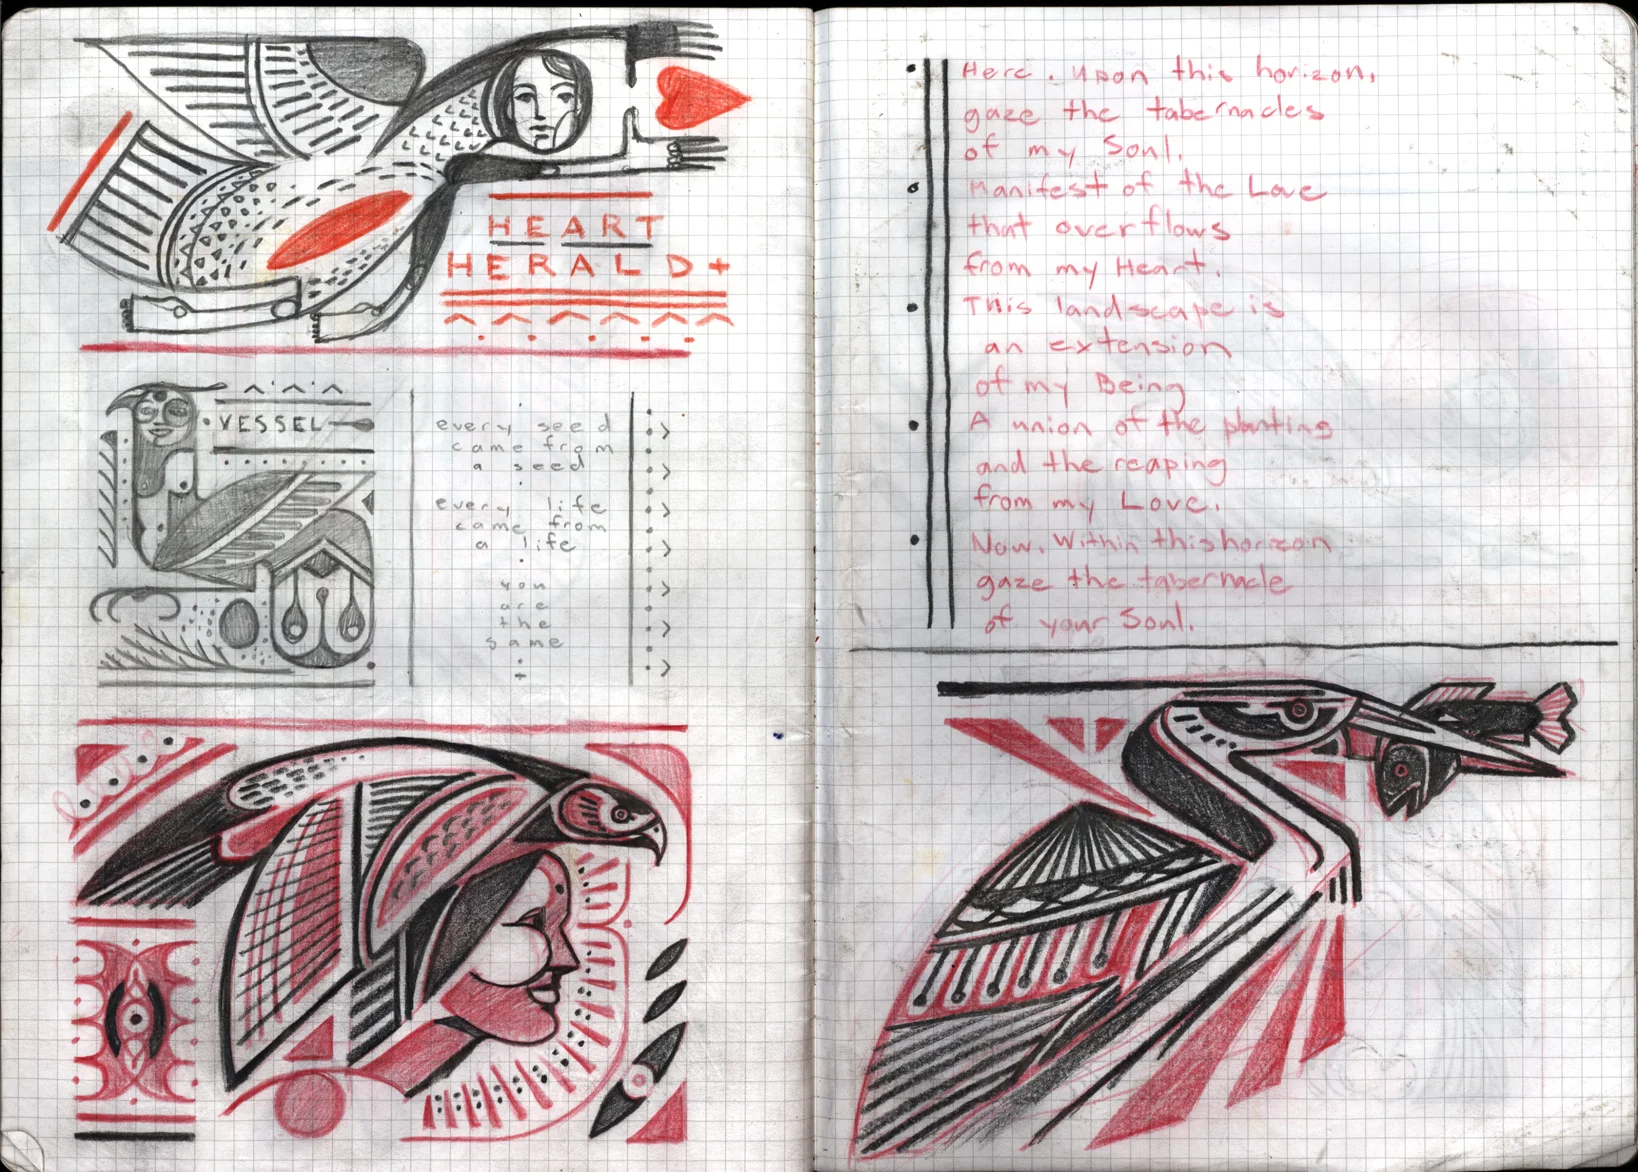 HEART
HERALD+
VESSEL
every seed
came from
a seed
every life
came from
a life
you
are
the
same
Here. Upon this horizon,
gaze the tabernacles
of my Soul.
Manifest of the Love
that overflows
from my Heart.
This landscape is
an extension
of my Being
A union of the planting
and the reaping
from my Love.
Now. Within this horizon
gaze the tabernacle
of your Soul.